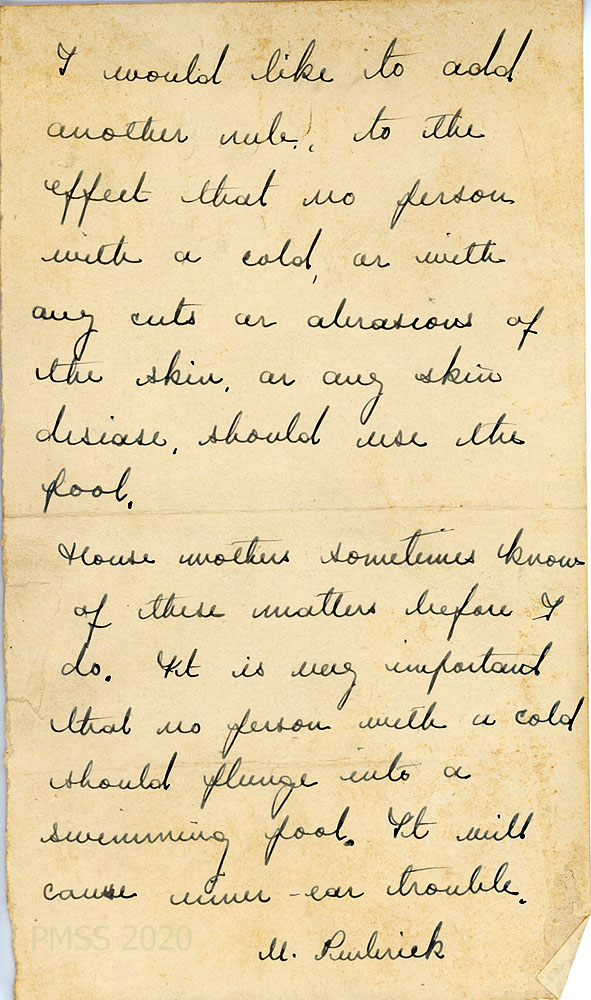 I would like to add
another rule, to the
effect that no person
with a cold, or with
any cuts or abrasions of
the skin, or any skin
disease, should use the
pool.
House mothers sometimes know
of these matters before I
do. It is very important
that no person with a cold
should plunge into a
swimming pool. It will
cause inner-ear trouble.
M.
PMSS 2020